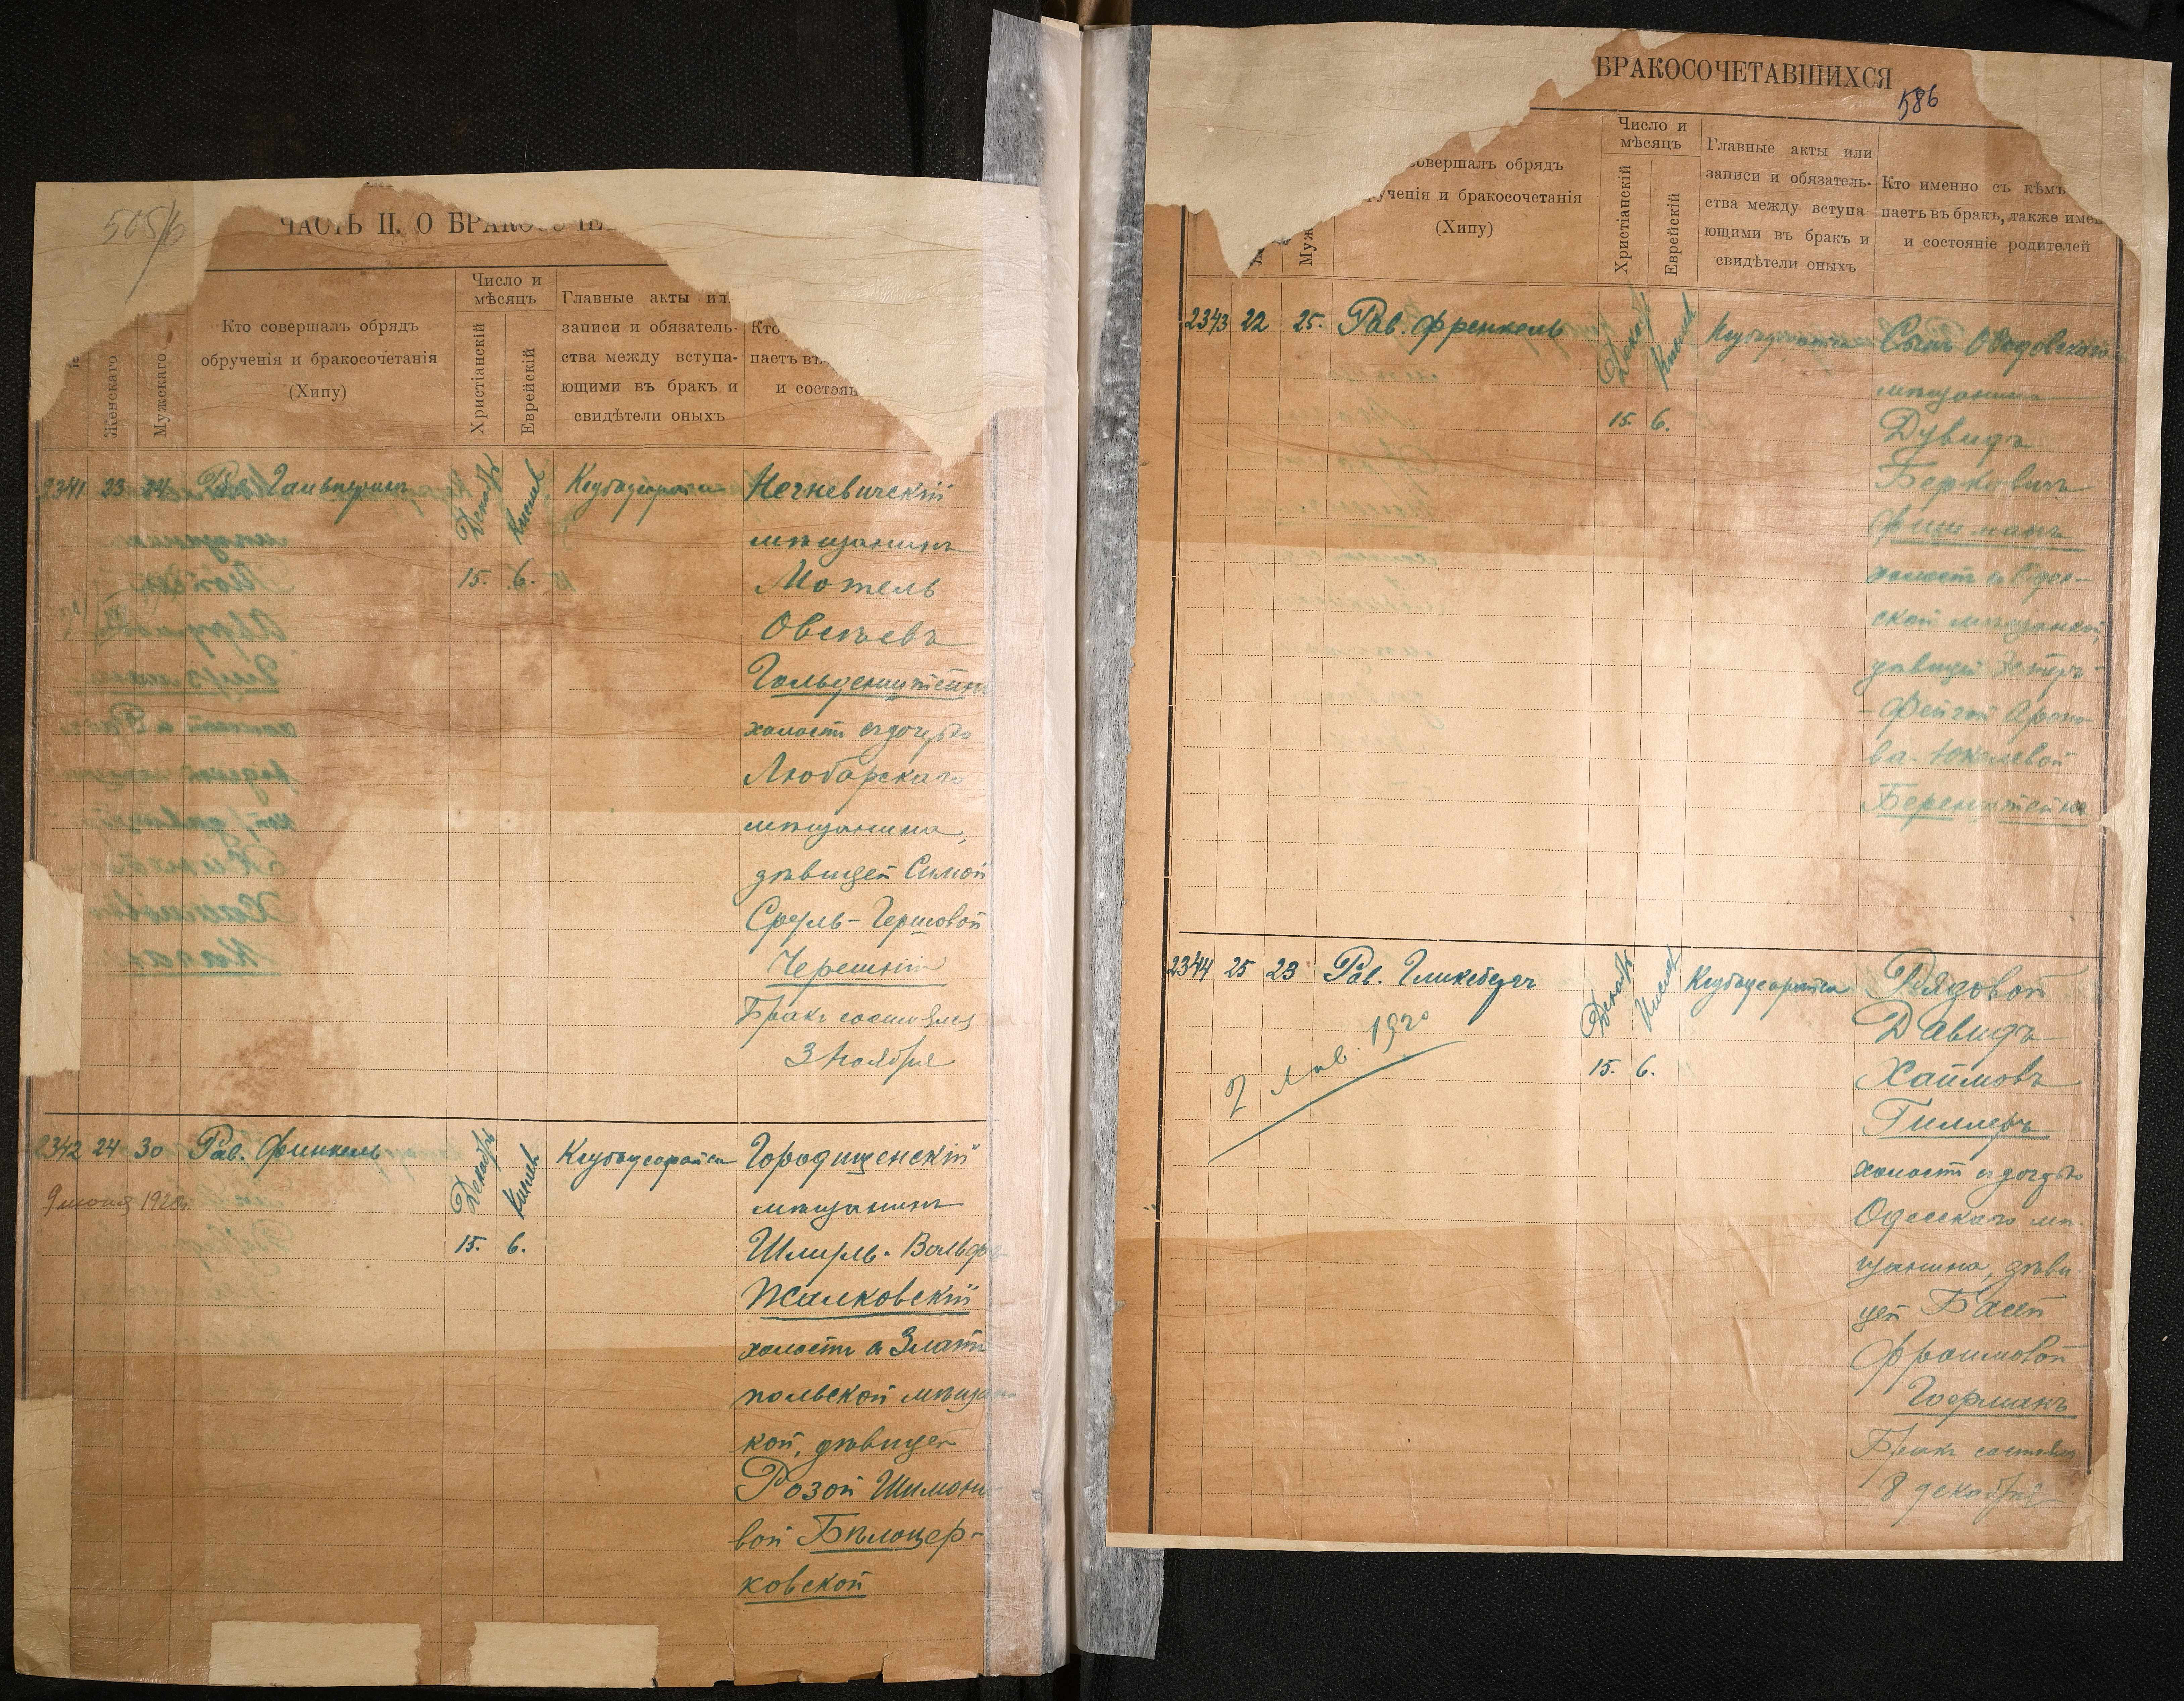 505/6
ЧАСТЬ II. О БРАКОСОЧЕ
Женскаго
Мужскаго
Кто совершалъ обрядъ
обрученія и бракосочетанія
(Хипу)
Число и
мѣсяцъ
Христіанскій
Еврейскій
Главные акты ил
записи и обязатель-
ства между вступа-
ющими въ бракъ и
свидѣтели оныхъ
Кто
паетъ въ
и состоян
2341 23 24 Рав. Гальперинъ Декабр Кислев Ктубусорайса Негневичскій
мѣщанинъ
15. 6. Мотель
Овсѣевъ
Гольденштейнъ
холостъ съ дочерью
Любарскаго
мѣщанина,
дѣвицей Симой
Сруль-Гершовой
Черешнѣ
Бракъ состоялся
3 ноября
2342 24 30 Рав. Финкель Декабр Кислев Ктубусорайса Городищенскій
9 июня 1920г. мѣщанинъ
15. 6. Шмуль-Вольфъ
Жалковскій
холостъ съ Злато
польской мѣщан
кой, дѣвицей
Розой Шимоно
вой Бѣлоцер-
ковской
БРАКОСОЧЕТАВШИХСЯ
586
Муж
совершалъ обрядъ
ученія и бракосочетанія
(Хипу)
Число и
мѣсяцъ
Христіанскій
Еврейскій
Главные акты или
записи и обязатель-
ства между вступа
ющими въ бракъ и
свидѣтели оныхъ
Кто именно съ кѣмъ
паетъ въ бракъ, также имен
и состояніе родителей
2343 22 25. Рав. Френкель Декабр Кислев Ктубусорайса Сынъ Обадовскаго
мѣщанина
15. 6. Дувидъ
Берковичъ
Фишманъ
холостъ съ Одес-
ской мѣщанкой,
дѣвицей Эстеръ-
-Фейгой Ароно-
ва-Юкелевой
Беренштейнъ
2344 25 23 Рав. Гликсбергъ Декабр Кислев Ктубусорайса Рядовой
2 Янв. 1920 Давидъ
15. 6. Хаимовъ
Гиллеръ
холостъ съ дочерью
Одесскаго мѣ-
щанина, дѣви
цей Басей
Фроимовой
Гофманъ
Бракъ состоялся
8 декабря